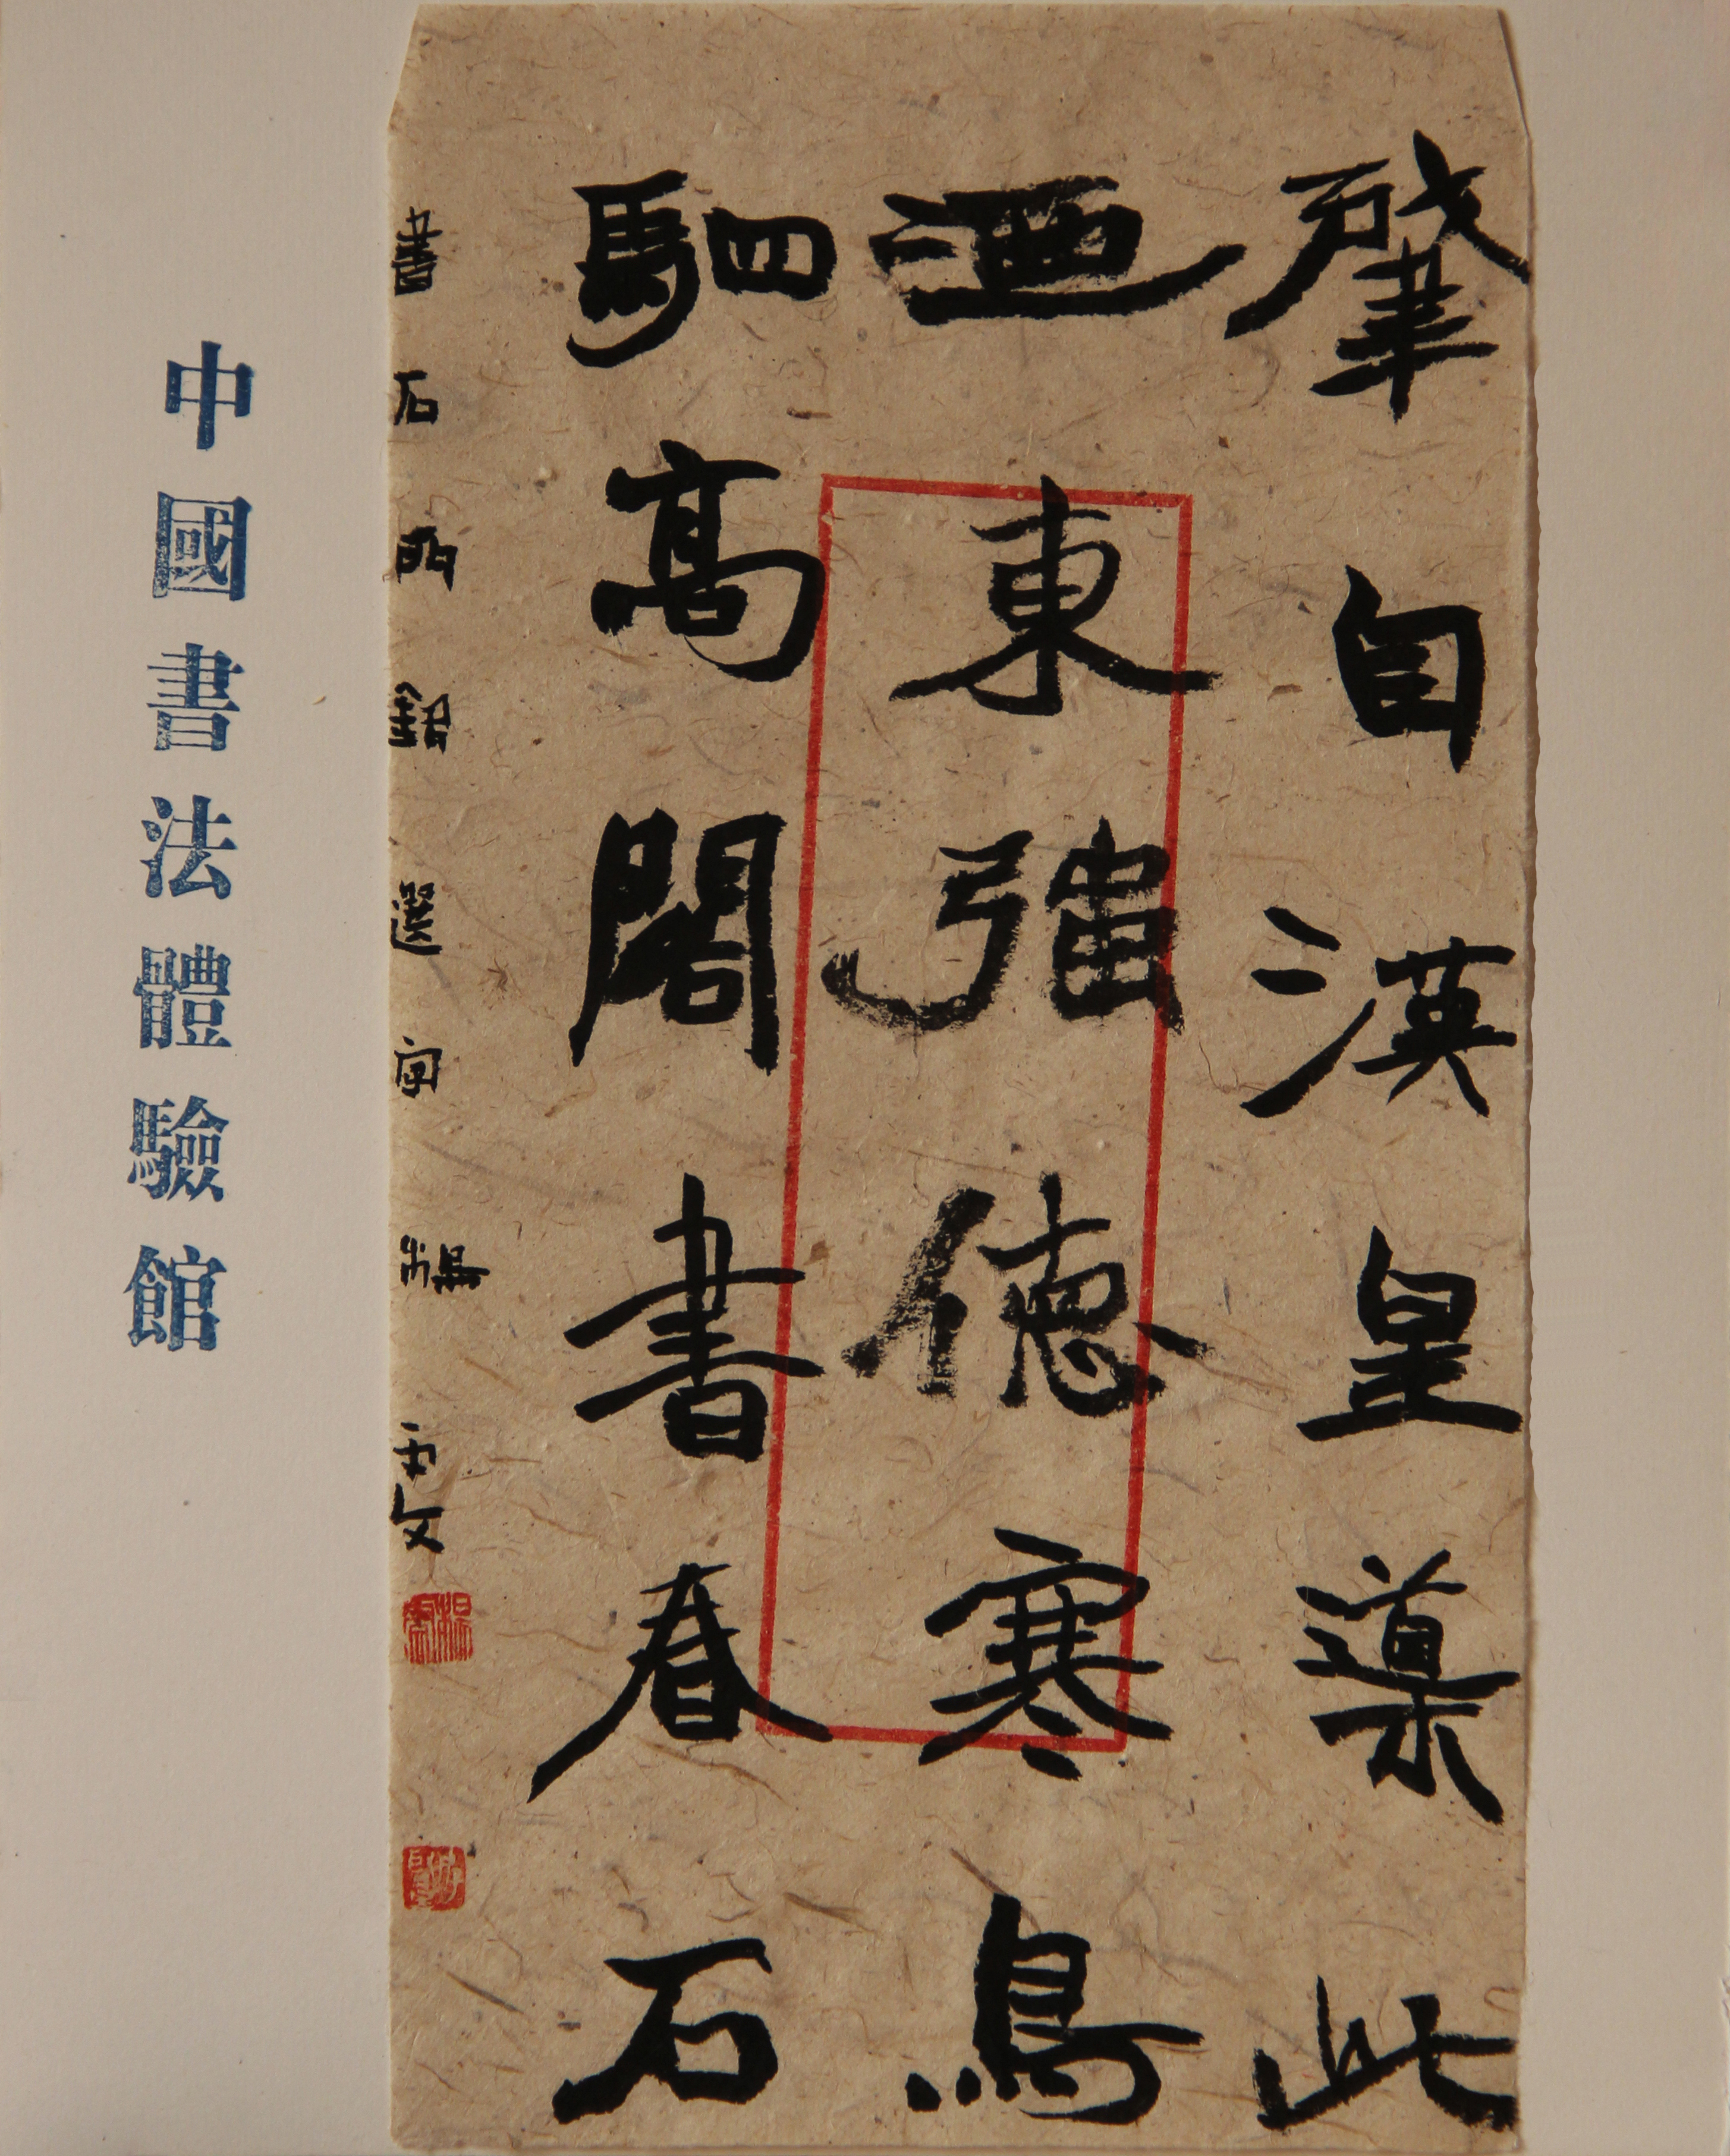 肇自漢皇導此
迺東強德寒鳥
駟高閣書春石
書石門銘選字楊雯
中國書法體驗館